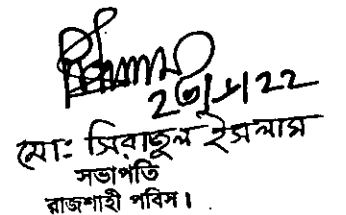 মো: সিরাজুল ইসলাম
সভাপতি
রাজশাহী পবিস।